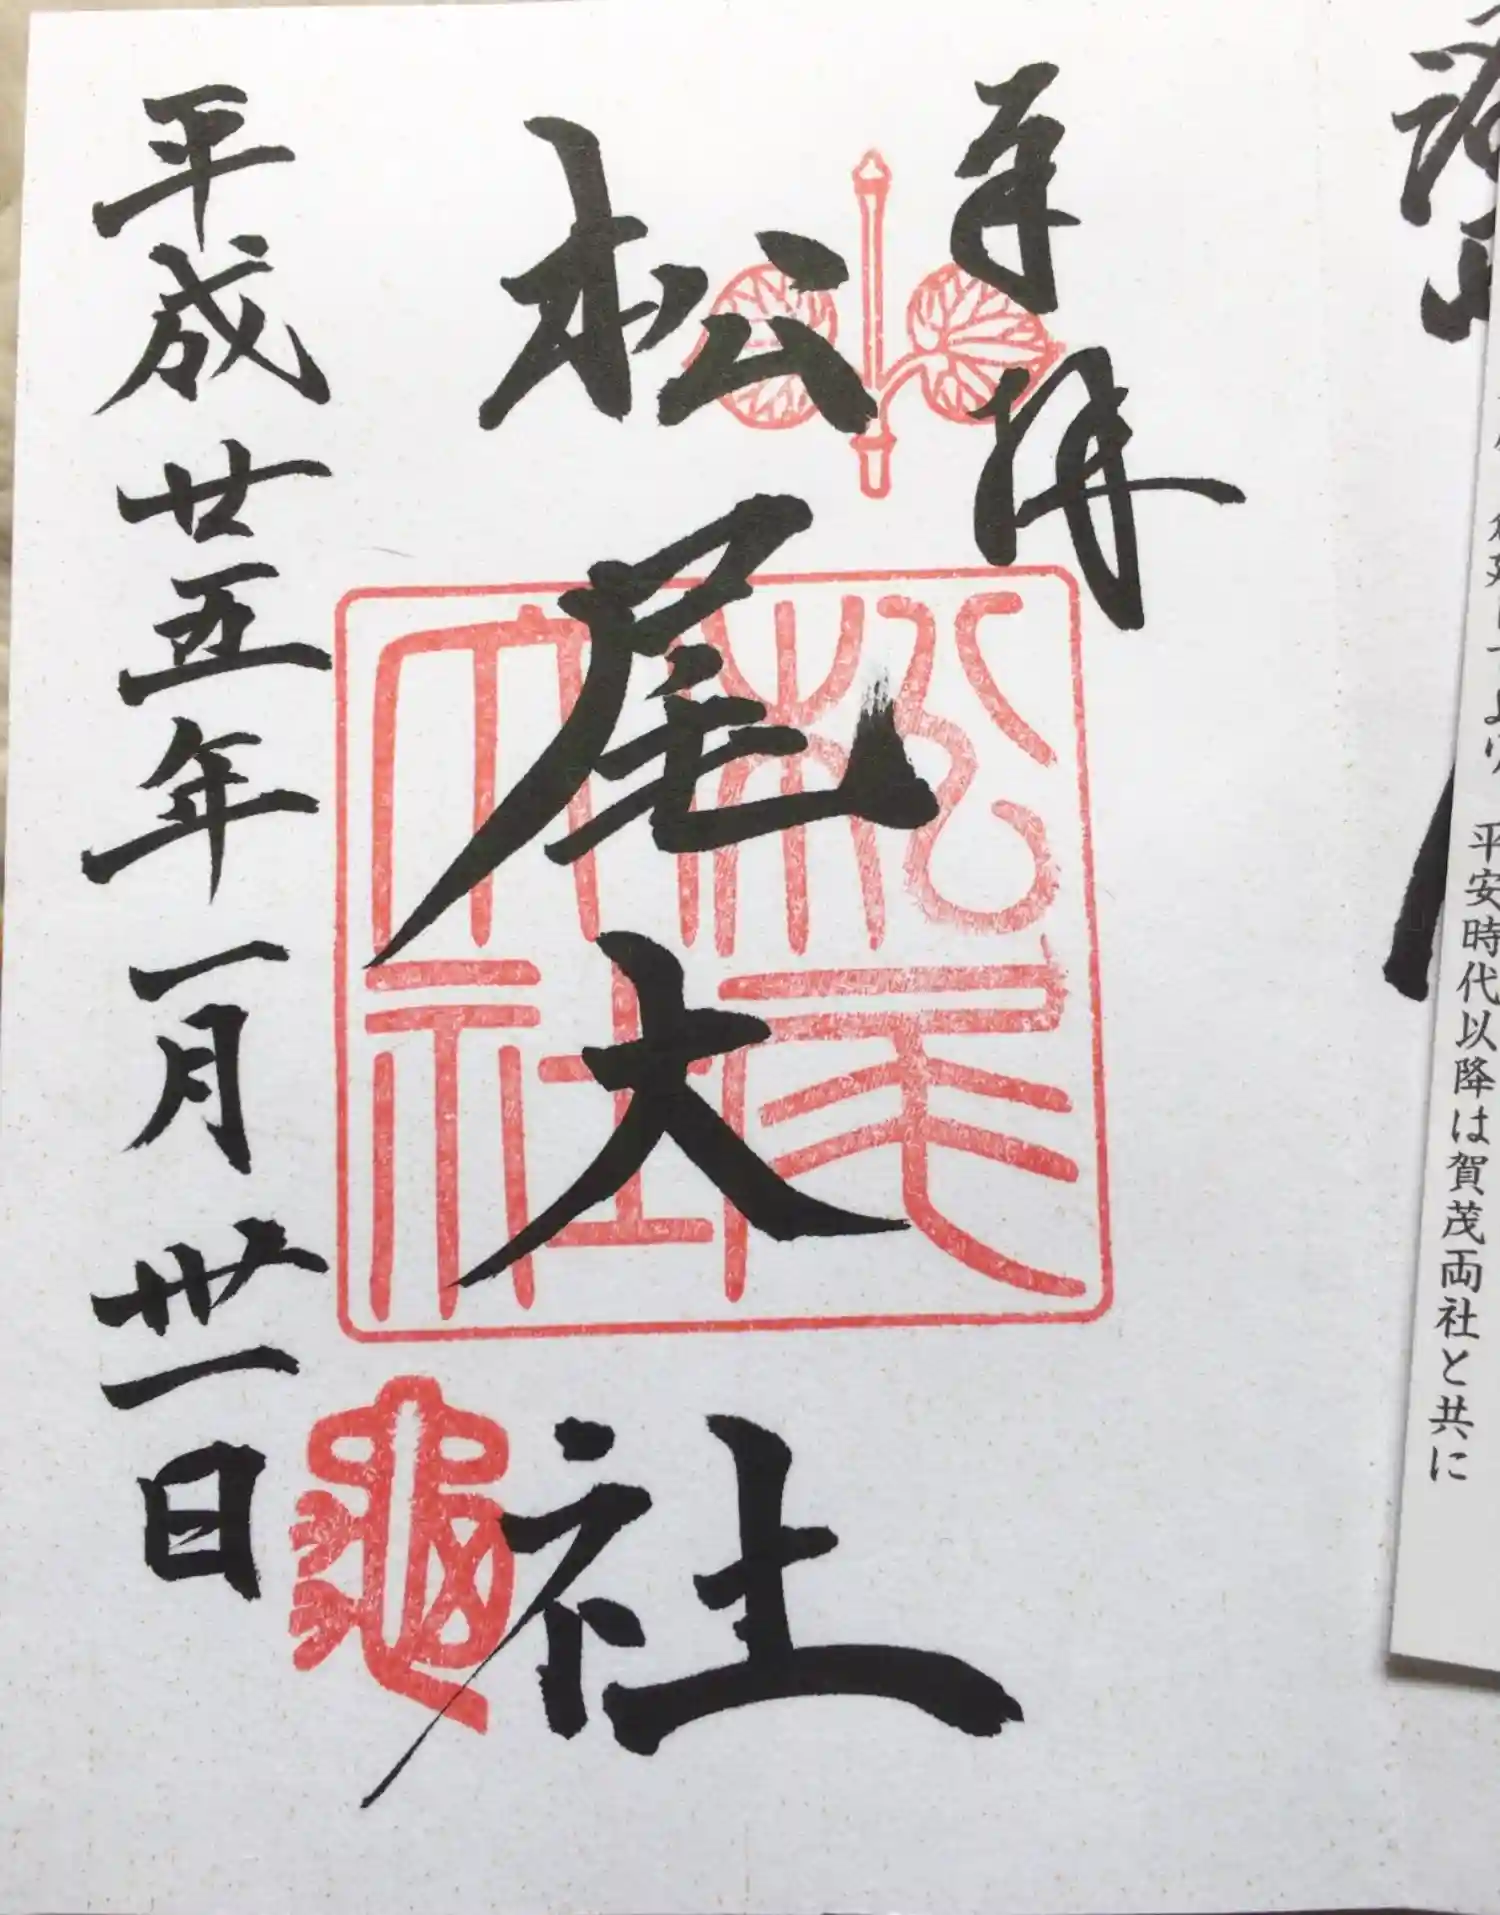 平安時代以降は賀茂両社と共に
奉拝
松尾大社
松尾大社
平成廿五年一月丗一日
亀